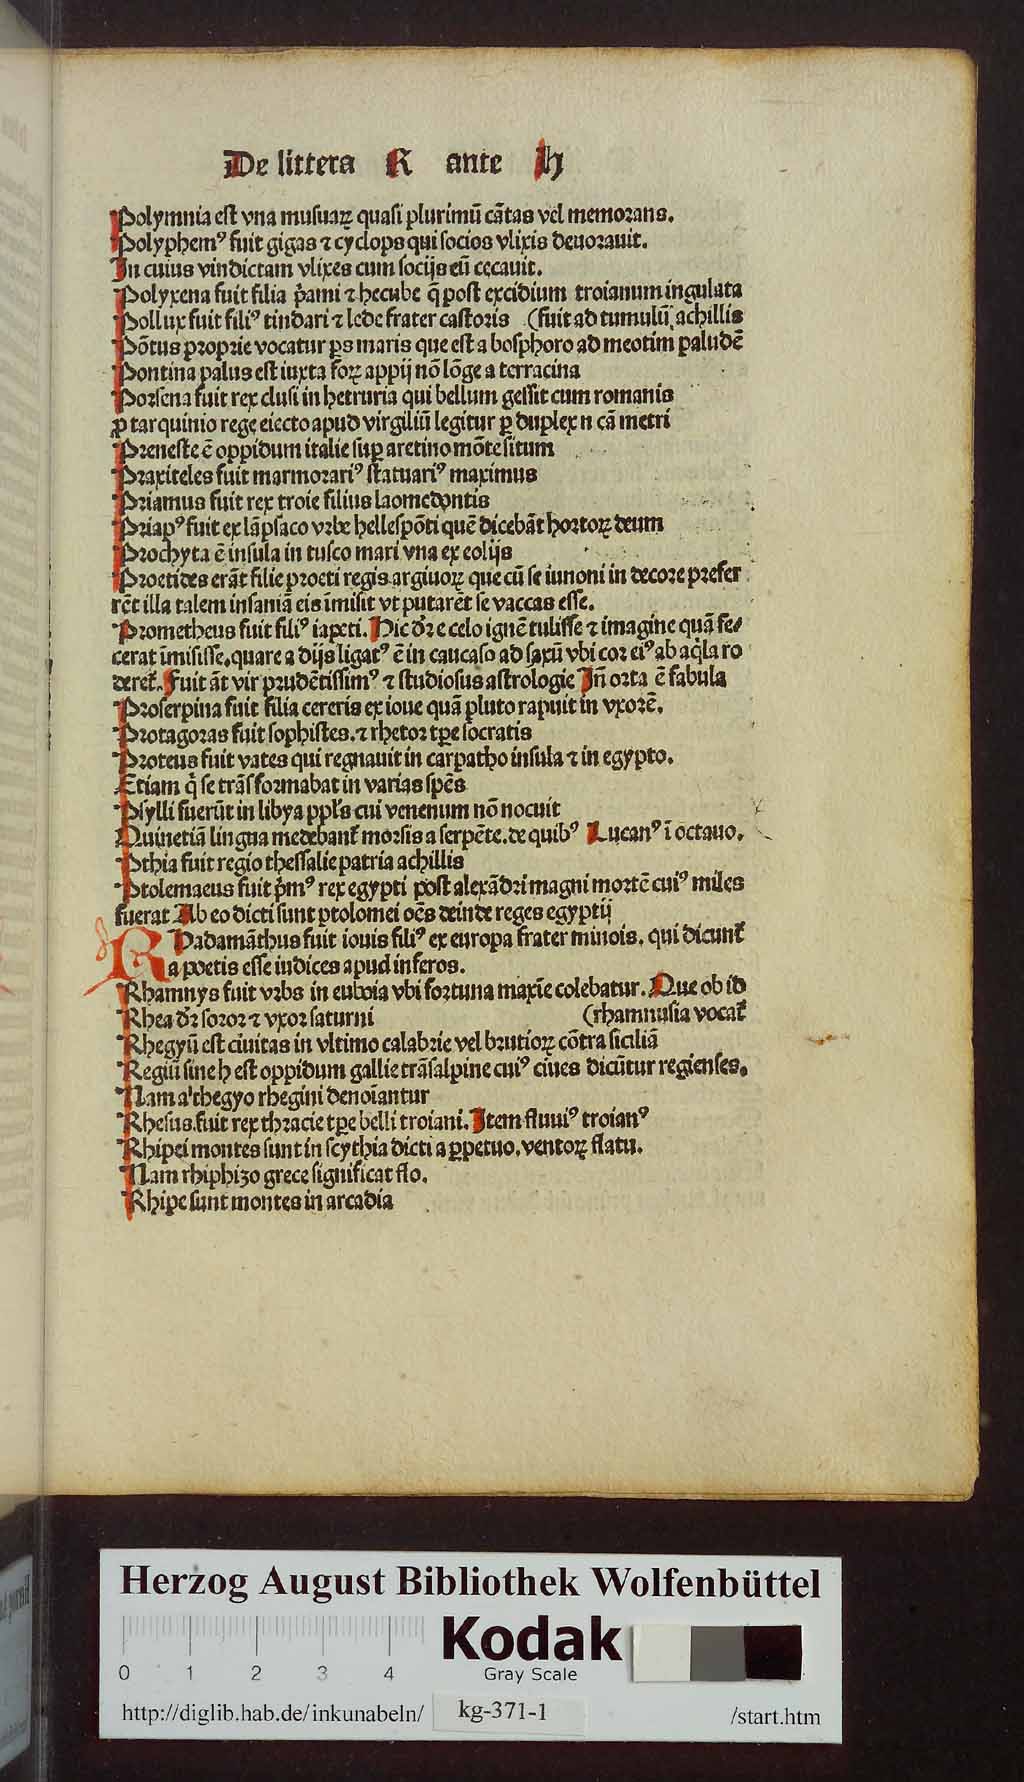 De littera R ante H
Polymnia est vna musuaꝝ quasi plurimū cātas vel memorans.
Polyphemꝰ fuit gigas ⁊ cyclops qui socios vlixis deuorauit.
In cuius vindictam vlixes cum socijs eū cecauit.
Polyxena fuit filia p̄ami ⁊ hecube q̄ post excidium troianum ingulata
Pollux fuit filiꝰ tindari ⁊ lede frater castoris (fuit ad tumulū achillis
Pōtus proprie vocatur ps maris que est a bosphoro ad meotim paludē
Pontina palus est iuxta foꝝ appij nō lōge a terracina
Porsena fuit rex clusi in hetruria qui bellum gessit cum romanis
ꝓ tarquinio rege eiecto apud virgiliū legitur ꝑ duplex n cā metri
Preneste ē oppidum italie suꝑ aretino mōte situm
Praxiteles fuit marmorariꝰ statuariꝰ maximus
Priamus fuit rex troie filius laomedontis
Priapꝰ fuit ex lāpsaco vrbe hellespōti quē dicebāt hortoꝝ deum
Prochyta ē insula in tusco mari vna ex eolijs
Proetides erāt filie proeti regis argiuoꝝ que cū se iunoni in decore prefer
rēt illa talem insaniā eis īmisit vt putarēt se vaccas esse.
Prometheus fuit filiꝰ iapeti. Hic dr̄ e celo ignē tulisse ⁊ imagine quā fe⸗
cerat īmisisse.quare a dijs ligatꝰ ē in caucaso ad saxū vbi cor eiꝰ ab aq̇la ro
deret̄. Fuit āt vir prudētissimꝰ ⁊ studiosus astrologie Iñ orta ē fabula
Proserpina fuit filia cereris ex ioue quā pluto rapuit in vxorē.
Protagoras fuit sophistes.⁊ rhetor tꝑe socratis
Proteus fuit vates qui regnauit in carpatho insula ⁊ in egypto.
Etiam q̇ se trāsformabat in varias spēs
Psylli fuerūt in libya ppl's cui venenum nō nocuit
Quinetiā lingua medebant̄ morsis a serpēte.de quibꝰ Lucanꝰ ī octauo.
Pthia fuit regio thessalie patria achillis
Ptolemaeus fuit p̄mꝰ rex egypti post alexādri magni mortē cuiꝰ miles
fuerat Ab eo dicti sunt ptolomei oēs deinde reges egyptij
RHadamāthus fuit iouis filiꝰ ex europa frater minois. qui dicunt̄
a poetis esse iudices apud inferos.
Rhamnys fuit vrbs in euboia vbi fortuna maxīe colebatur. Que ob id
Rhea dr̄ soror ⁊ vxor saturni (rhamnusia vocat̄
Rhegyū est ciuitas in vltimo calabrie vel brutioꝝ cōtra siciliā
Regiū sine h est oppidum gallie trāsalpine cuiꝰ ciues dicūtur regienses.
Nam a rhegyo rhegini denoīantur
Rhesus.fuit rex thracie tꝑe belli troiani. Item fluuiꝰ troianꝰ
Rhipei montes sunt in scythia dicti a ꝑpetuo.ventoꝝ flatu.
Nam rhiphizo grece significat flo.
Rhipe sunt montes in arcadia
Herzog August Bibliothek Wolfenbüttel
Kodak
0 1 2 3 4 Gray Scale
http://diglib.hab.de/inkunabeln/ kg-371-1 /start.htm